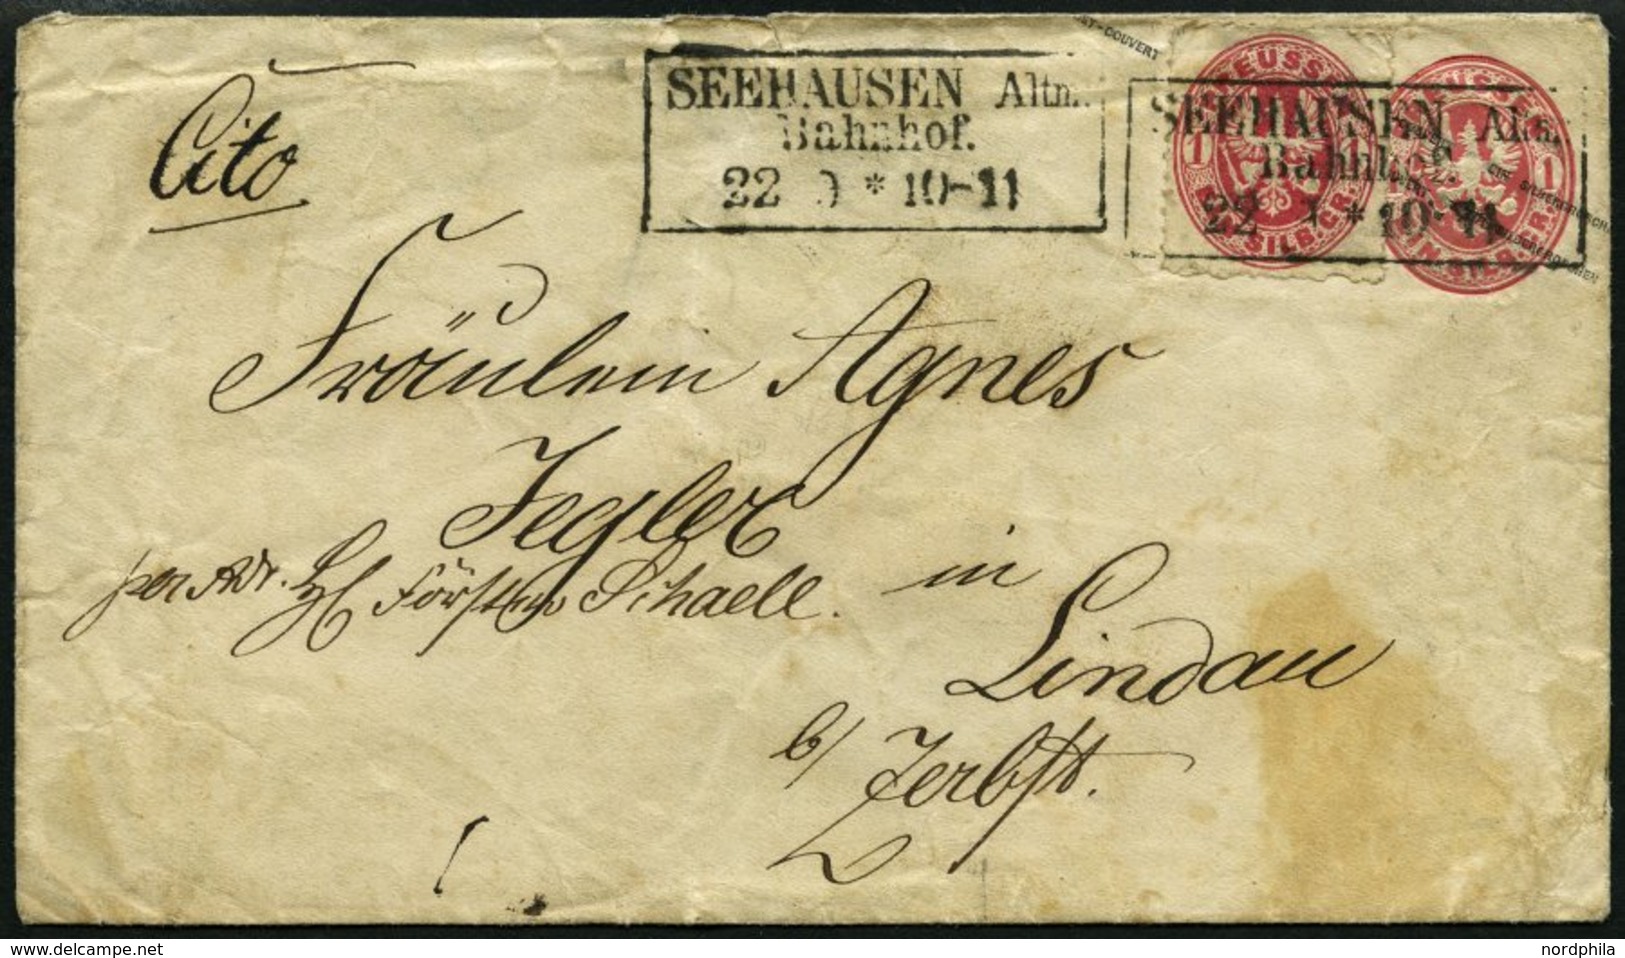 Cito
SEEHAUSEN Altm.
Bahnhof.
22 9 * 10-11
SEEHAUSEN Altm.
Bahnhof.
22 * 10-11
PREUSSEN
1 1
EIN SILB.GR.
1
EIN SILB.GR.
Fräulein Agnes
Jegler
per Adr. Förster Schaele.
in
Lindau
b/ Zerbst.
delcampe.net
nordphila